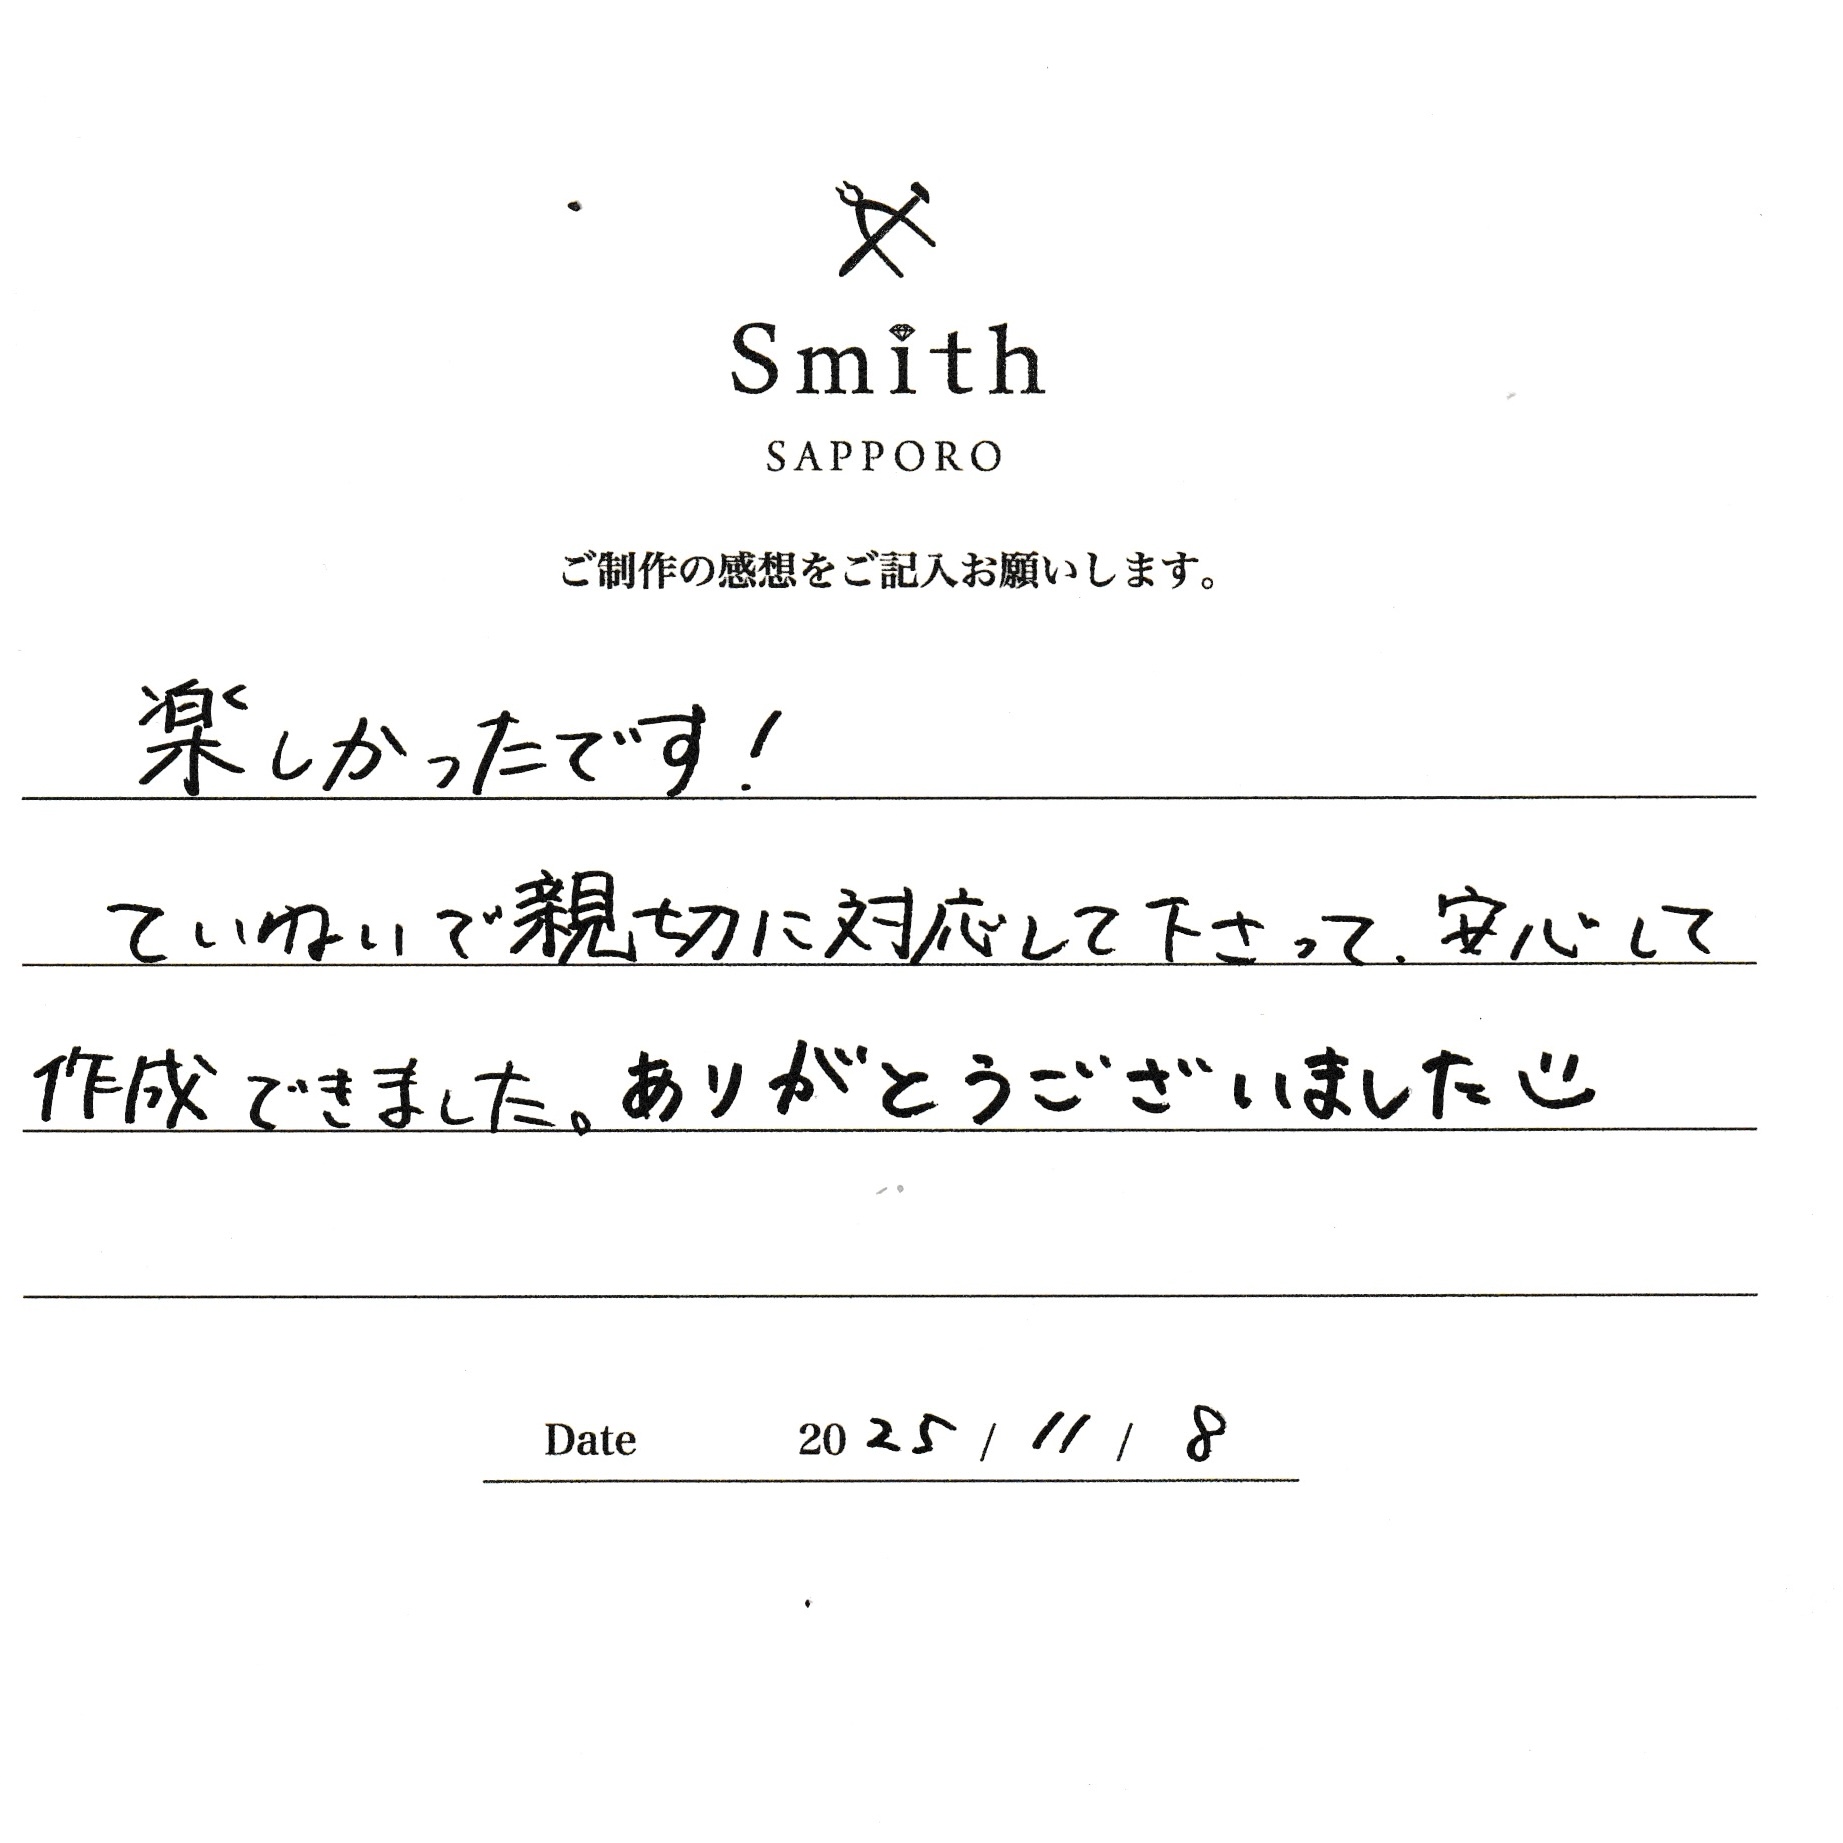 Smith
SAPPORO
ご制作の感想をご記入お願いします。
楽しかったです!
ていねいで親切に対応して下さって、安心して
作成できました。ありがとうございました
Date 2025 / 11 / 8